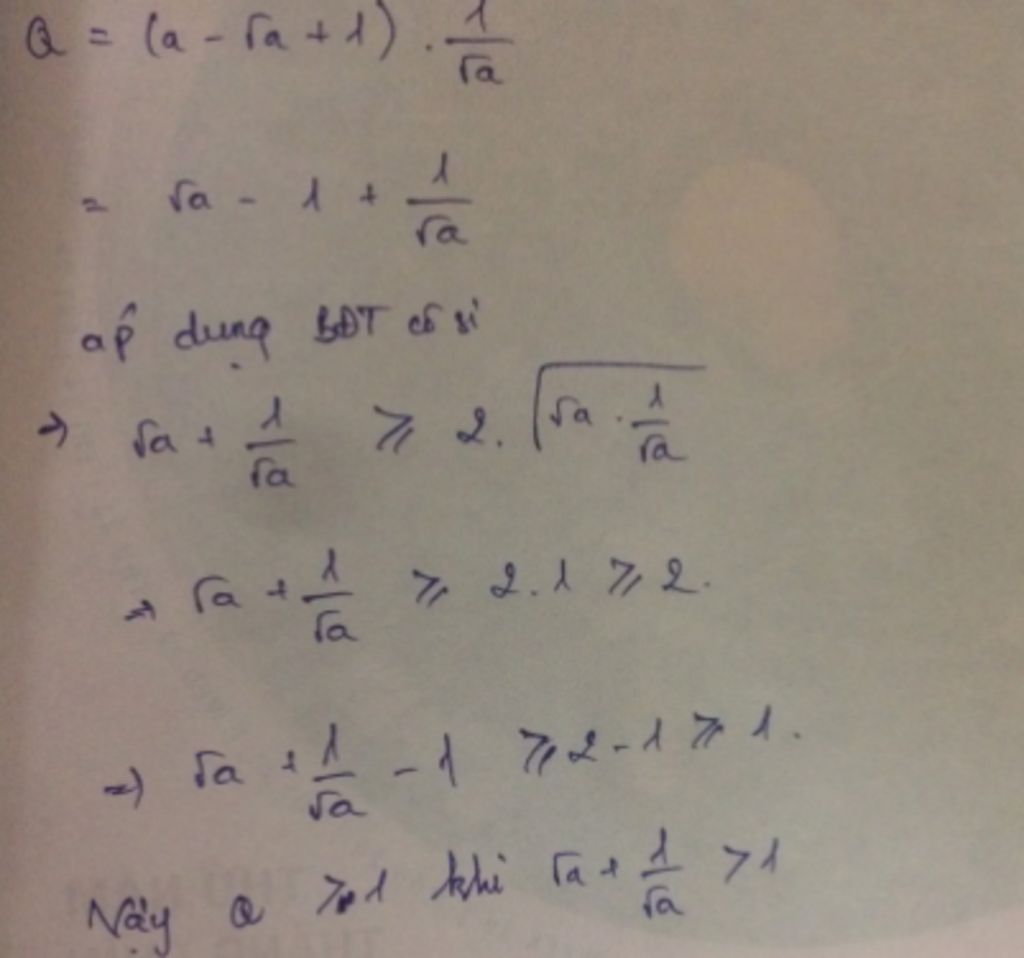 Q = (a - √a + 1) . 1/√a
= √a - 1 + 1/√a
áp dụng BĐT cô si
→ √a + 1/√a ⩾ 2. √(√a . 1/√a)
⇒ √a + 1/√a ⩾ 2.1 ⩾ 2.
⇒ √a + 1/√a - 1 ⩾ 2 - 1 ⩾ 1.
Vậy Q ⩾ 1 khi √a + 1/√a > 1